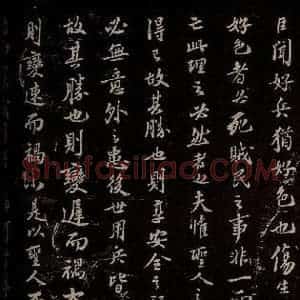 臣聞好兵猶好色也傷生
好色者必死賊民之事非一
亡此理之必然者也夫惟聖人之
得已故其勝也則享安全之
必無意外之患後世用兵皆
故其勝也則變遲而禍大
則變速而禍小是以聖人不
Shufaziliao.com